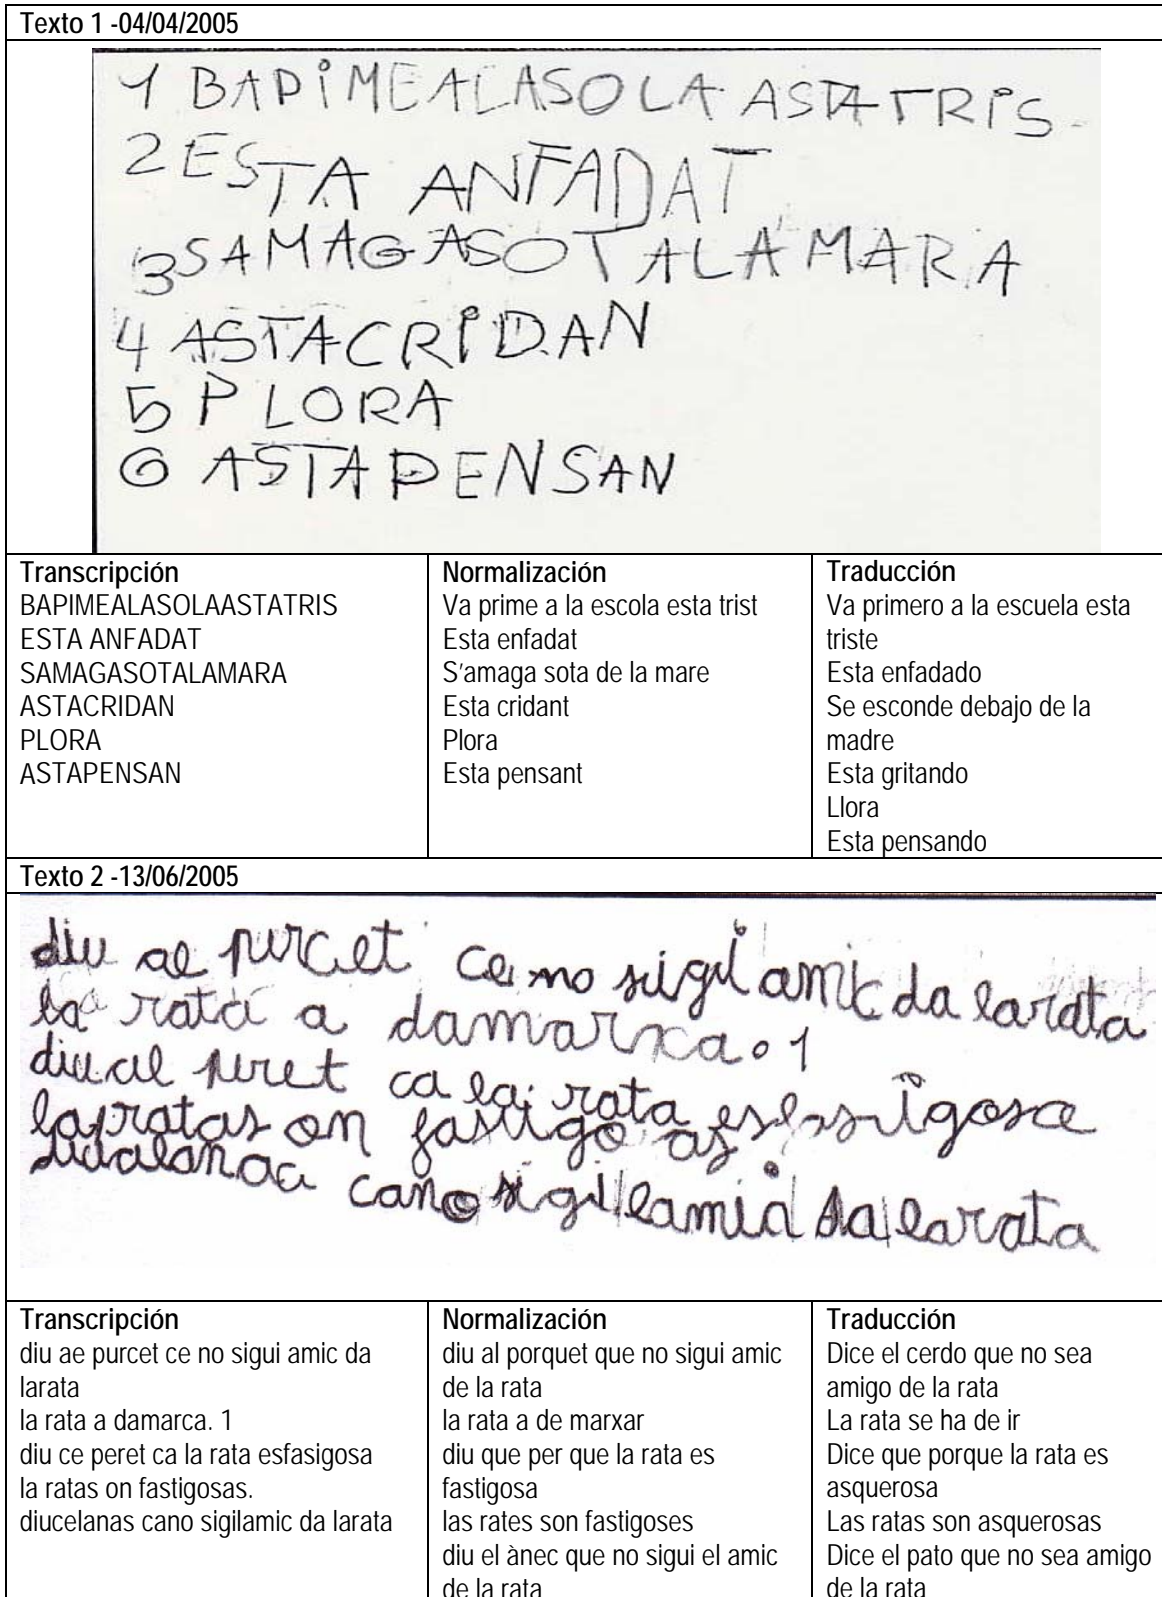 Texto 1 -04/04/2005
1 BAPIMEALASOLA ASTATRIS
2 ESTA ANFADAT
3 SAMAGASOTALAMARA
4 ASTACRIDAN
5 PLORA
6 ASTAPENSAN
Transcripción
BAPIMEALASOLAASTATRIS
ESTA ANFADAT
SAMAGASOTALAMARA
ASTACRIDAN
PLORA
ASTAPENSAN
Normalización
Va prime a la escola esta trist
Esta enfadat
S'amaga sota de la mare
Esta cridant
Plora
Esta pensant
Traducción
Va primero a la escuela esta
triste
Esta enfadado
Se esconde debajo de la
madre
Esta gritando
Llora
Esta pensando
Texto 2 -13/06/2005
diu ae purcet ce no sigui amic da larata
la rata a damarxa. 1
diu al ca la rata
la ratas on fastigo as
cano sigi lamic da larata
Transcripción
diu ae purcet ce no sigui amic da
larata
la rata a damarca. 1
diu ce peret ca la rata esfasigosa
la ratas on fastigosas.
diucelanas cano sigilamic da larata
Normalización
diu al porquet que no sigui amic
de la rata
la rata a de marxar
diu que per que la rata es
fastigosa
las rates son fastigoses
diu el ànec que no sigui el amic
de la rata
Traducción
Dice el cerdo que no sea
amigo de la rata
La rata se ha de ir
Dice que porque la rata es
asquerosa
Las ratas son asquerosas
Dice el pato que no sea amigo
de la rata